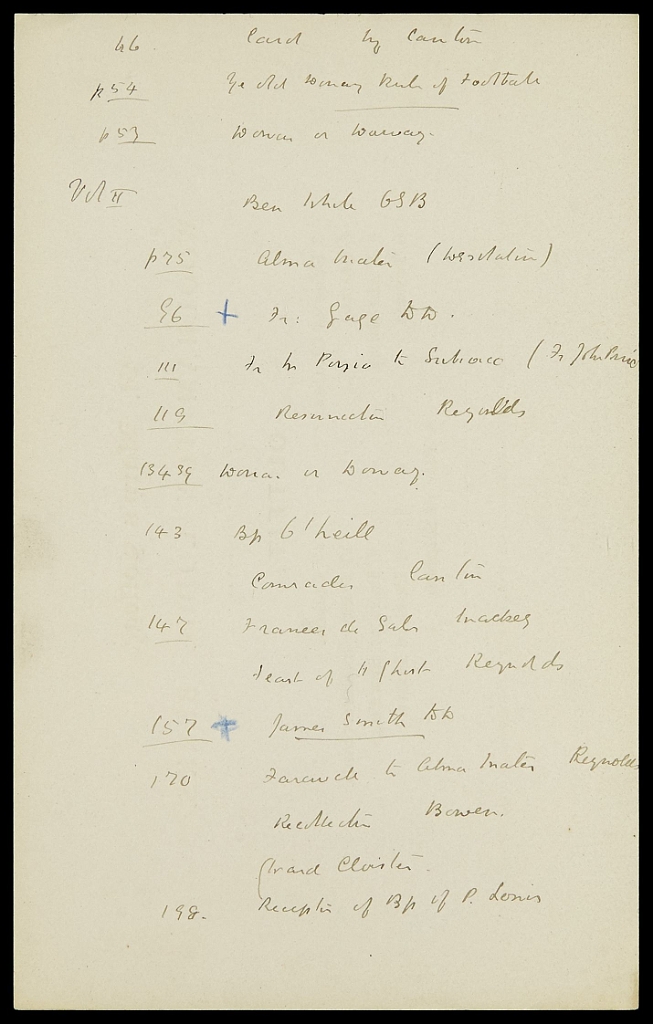 46. Card by Caulin
p54 Ye old Douay Rule of Football
p53 Douai or Douay.
Vol II Ben White OSB
p75 Alma Mater
96 + Fr: Gage DD.
111 Fr to Subiaco (Fr John
119 Resurrection Reynolds
13439 Douai or Douay.
143 Bp O'Neill
Comrades
147 Frances de Sales Mackey
Feast of H Ghost Reynolds
157 + James Smith DD
170 Farewell to Alma Mater Reynolds
Recollection Bowen.
Cloister.
198. Reception of Bp of P. Louis